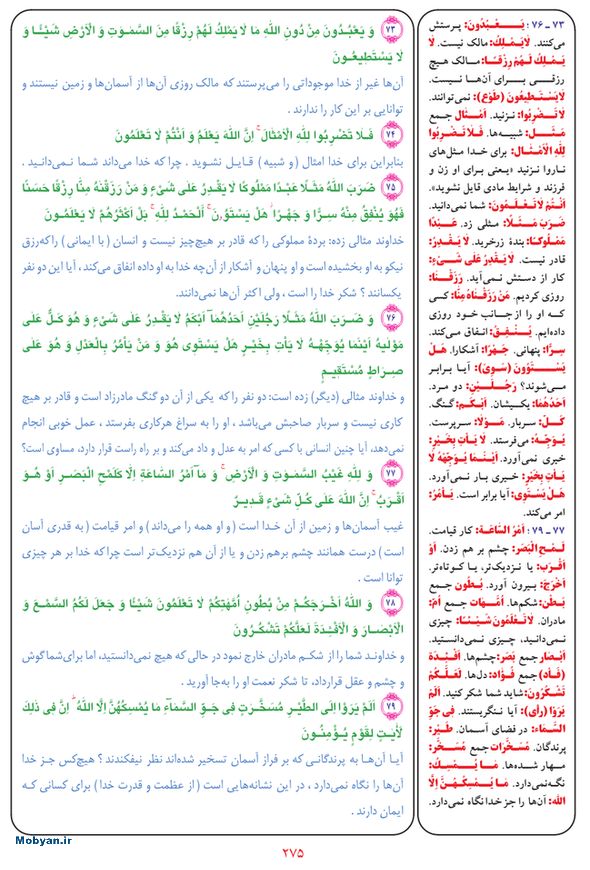 ﴿۷۳﴾ وَ يَعْبُدُونَ مِنْ دُونِ اللَّهِ مَا لَا يَمْلِكُ لَهُمْ رِزْقًا مِنَ السَّمٰوَاتِ وَ الْأَرْضِ شَيْئًا وَ
لَا يَسْتَطِيعُونَ
آن‌ها غیر از خدا موجوداتی را می‌پرستند که مالک روزی آن‌ها از آسمان‌ها و زمین نیستند و
توانایی بر این کار را ندارند .
﴿۷۴﴾ فَلَا تَضْرِبُوا لِلَّهِ الْأَمْثَالَ ۚ إِنَّ اللَّهَ يَعْلَمُ وَ أَنْتُمْ لَا تَعْلَمُونَ
بنابراین برای خدا امثال ( و شبیه ) قایل نشوید . چرا که خدا می‌داند شما نمی‌دانید .
﴿۷۵﴾ ضَرَبَ اللَّهُ مَثَلًا عَبْدًا مَمْلُوكًا لَا يَقْدِرُ عَلَىٰ شَيْءٍ وَ مَنْ رَزَقْنٰهُ مِنَّا رِزْقًا حَسَنًا
فَهُوَ يُنْفِقُ مِنْهُ سِرًّا وَ جَهْرًا ۖ هَلْ يَسْتَوُونَ ۚ الْحَمْدُ لِلَّهِ ۚ بَلْ أَكْثَرُهُمْ لَا يَعْلَمُونَ
خداوند مثالی زده: بردهٔ مملوکی را که قادر بر هیچ‌چیز نیست و انسان ( با ایمانی ) را که رزق
نیکو به او بخشیده است و او پنهان و آشکار از آن‌چه خدا به او داده انفاق می‌کند ، آیا این دو نفر
یکسانند ؟ شکر خدا را است ، ولی اکثر آن‌ها نمی‌دانند.
﴿۷۶﴾ وَ ضَرَبَ اللَّهُ مَثَلًا رَجُلَيْنِ أَحَدُهُمَا أَبْكَمُ لَا يَقْدِرُ عَلَىٰ شَيْءٍ وَ هُوَ كَلٌّ عَلَىٰ
مَوْلٰيهُ أَيْنَمَا يُوَجِّهْهُ لَا يَأْتِ بِخَيْرٍ هَلْ يَسْتَوِي هُوَ وَ مَنْ يَأْمُرُ بِالْعَدْلِ وَ هُوَ عَلَىٰ
صِرَاطٍ مُسْتَقِيمٍ
و خداوند مثالی (دیگر) زده است: دو نفر را که یکی از آن دو گنگ مادرزاد است و قادر بر هیچ
کاری نیست و سربار صاحبش می‌باشد ، او را به سراغ هرکاری بفرستد ، عمل خوبی انجام
نمی‌دهد، آیا چنین انسانی با کسی که امر به عدل و داد می‌کند و بر راه راست قرار دارد، مساوی است؟
﴿۷۷﴾ وَ لِلَّهِ غَيْبُ السَّمٰوَاتِ وَ الْأَرْضِ ۚ وَ مَا أَمْرُ السَّاعَةِ إِلَّا كَلَمْحِ الْبَصَرِ أَوْ هُوَ
أَقْرَبُ ۚ إِنَّ اللَّهَ عَلَىٰ كُلِّ شَيْءٍ قَدِيرٌ
غیب آسمان‌ها و زمین از آن خدا است ( و او همه را می‌داند ) و امر قیامت ( به قدری آسان
است ) درست همانند چشم برهم زدن و یا از آن هم نزدیک‌تر است چرا که خدا بر هر چیزی
توانا است .
﴿۷۸﴾ وَ اللَّهُ أَخْرَجَكُمْ مِنْ بُطُونِ أُمَّهَاتِكُمْ لَا تَعْلَمُونَ شَيْئًا وَ جَعَلَ لَكُمُ السَّمْعَ وَ
الْأَبْصَارَ وَ الْأَفْئِدَةَ لَعَلَّكُمْ تَشْكُرُونَ
و خداوند شما را از شکم مادران خارج نمود در حالی که هیچ نمی‌دانستید، اما برای شما گوش
و چشم و عقل قرارداد، تا شکر نعمت او را به‌جا آورید .
﴿۷۹﴾ أَلَمْ يَرَوْا إِلَى الطَّيْرِ مُسَخَّرَاتٍ فِي جَوِّ السَّمَاءِ مَا يُمْسِكُهُنَّ إِلَّا اللَّهُ ۗ إِنَّ فِي ذٰلِكَ
لَآيٰتٍ لِقَوْمٍ يُؤْمِنُونَ
آیا آن‌ها به پرندگانی که بر فراز آسمان تسخیر شده‌اند نظر نیفکندند ؟ هیچ‌کس جز خدا
آن‌ها را نگاه نمی‌دارد ، در این نشانه‌هایی است ( از عظمت و قدرت خدا ) برای کسانی که
ایمان دارند .
۷۳ ـ ۷۶ : يَعْبُدُونَ: پرستش
می‌کنند. لَايَمْلِكُ: مالک نیست. لَا
يَمْلِكُ لَهُمْ رِزْقًا: مالک هیچ
رزقی برای آن‌ها نیست.
لَايَسْتَطِيعُونَ (طَوْع): نمی‌توانند.
لَا تَضْرِبُوا: نزنید. أَمْثَال جمع
مَثَل: شبیه‌ها. فَلَا تَضْرِبُوا
لِلَّهِ الْأَمْثَالَ: برای خدا مثل‌های
ناروا نزنید «یعنی برای او زن و
فرزند و شرایط مادی قایل نشوید».
أَنْتُمْ لَاتَعْلَمُونَ: شما نمی‌دانید.
ضَرَبَ مَثَلًا: مثلی زد. عَبْدًا
مَمْلُوكًا: بندهٔ زرخرید. لَا يَقْدِرُ:
قادر نیست. لَا يَقْدِرُ عَلَىٰ شَيْءٍ:
کار از دستش نمی‌آید. رَزَقْنَا:
روزی کردیم. مَنْ رَزَقْنَاهُ مِنَّا: کسی
که او را از جانب خود روزی
داده‌ایم. يُنْفِقُ: انفاق می‌کند.
سِرًّا: پنهانی. جَهْرًا: آشکارا. هَلْ
يَسْتَوُونَ (سَوِيَ): آیا برابر
می‌شوند؟ رَجُلَيْنِ: دو مرد.
أَحَدُهُمَا: یکیشان. أَبْكَمُ: گنگ.
كَلّ: سربار. مَوْلَا: سرپرست.
يُوَجِّهْ: می‌فرستد. لَا يَأْتِ بِخَيْرٍ:
خیری نمی‌آورد. أَيْنَمَا يُوَجِّهْهُ لَا
يَأْتِ بِخَيْرٍ: خیری بار نمی‌آورد.
هَلْ يَسْتَوِي: آیا برابر است. يَأْمُرُ:
امر می‌کند.
۷۷ ـ ۷۹ : أَمْرُ السَّاعَةِ: کار قیامت.
لَمْحِ الْبَصَرِ: چشم بر هم زدن. أَوْ
أَقْرَبُ: یا نزدیک‌تر، یا کوتاه‌تر.
أَخْرَجَ: بیرون آورد. بُطُون جمع
بَطْن: شکم‌ها. أُمَّهَات جمع أُمّ:
مادران. لَاتَعْلَمُونَ شَيْئًا: چیزی
نمی‌دانید، چیزی نمی‌دانستید.
أَبْصَار جمع بَصَر: چشم‌ها. أَفْئِدَة
(فَأَد) جمع فُؤَاد: دل‌ها. لَعَلَّكُمْ
تَشْكُرُونَ: شاید شما شکر کنید. أَلَمْ
يَرَوْا (رأى): آیا ننگریستند. فِي جَوِّ
السَّمَاءِ: در فضای آسمان. طَيْر:
پرندگان. مُسَخَّرَات جمع مُسَخَّر:
مهار شده‌ها. مَا يُمْسِكُ:
نگه‌نمی‌دارد. مَا يُمْسِكُهُنَّ إِلَّا
اللَّهُ: آن‌ها را جز خدا نگاه نمی‌دارد.
Mobyan.ir
۲۷۵